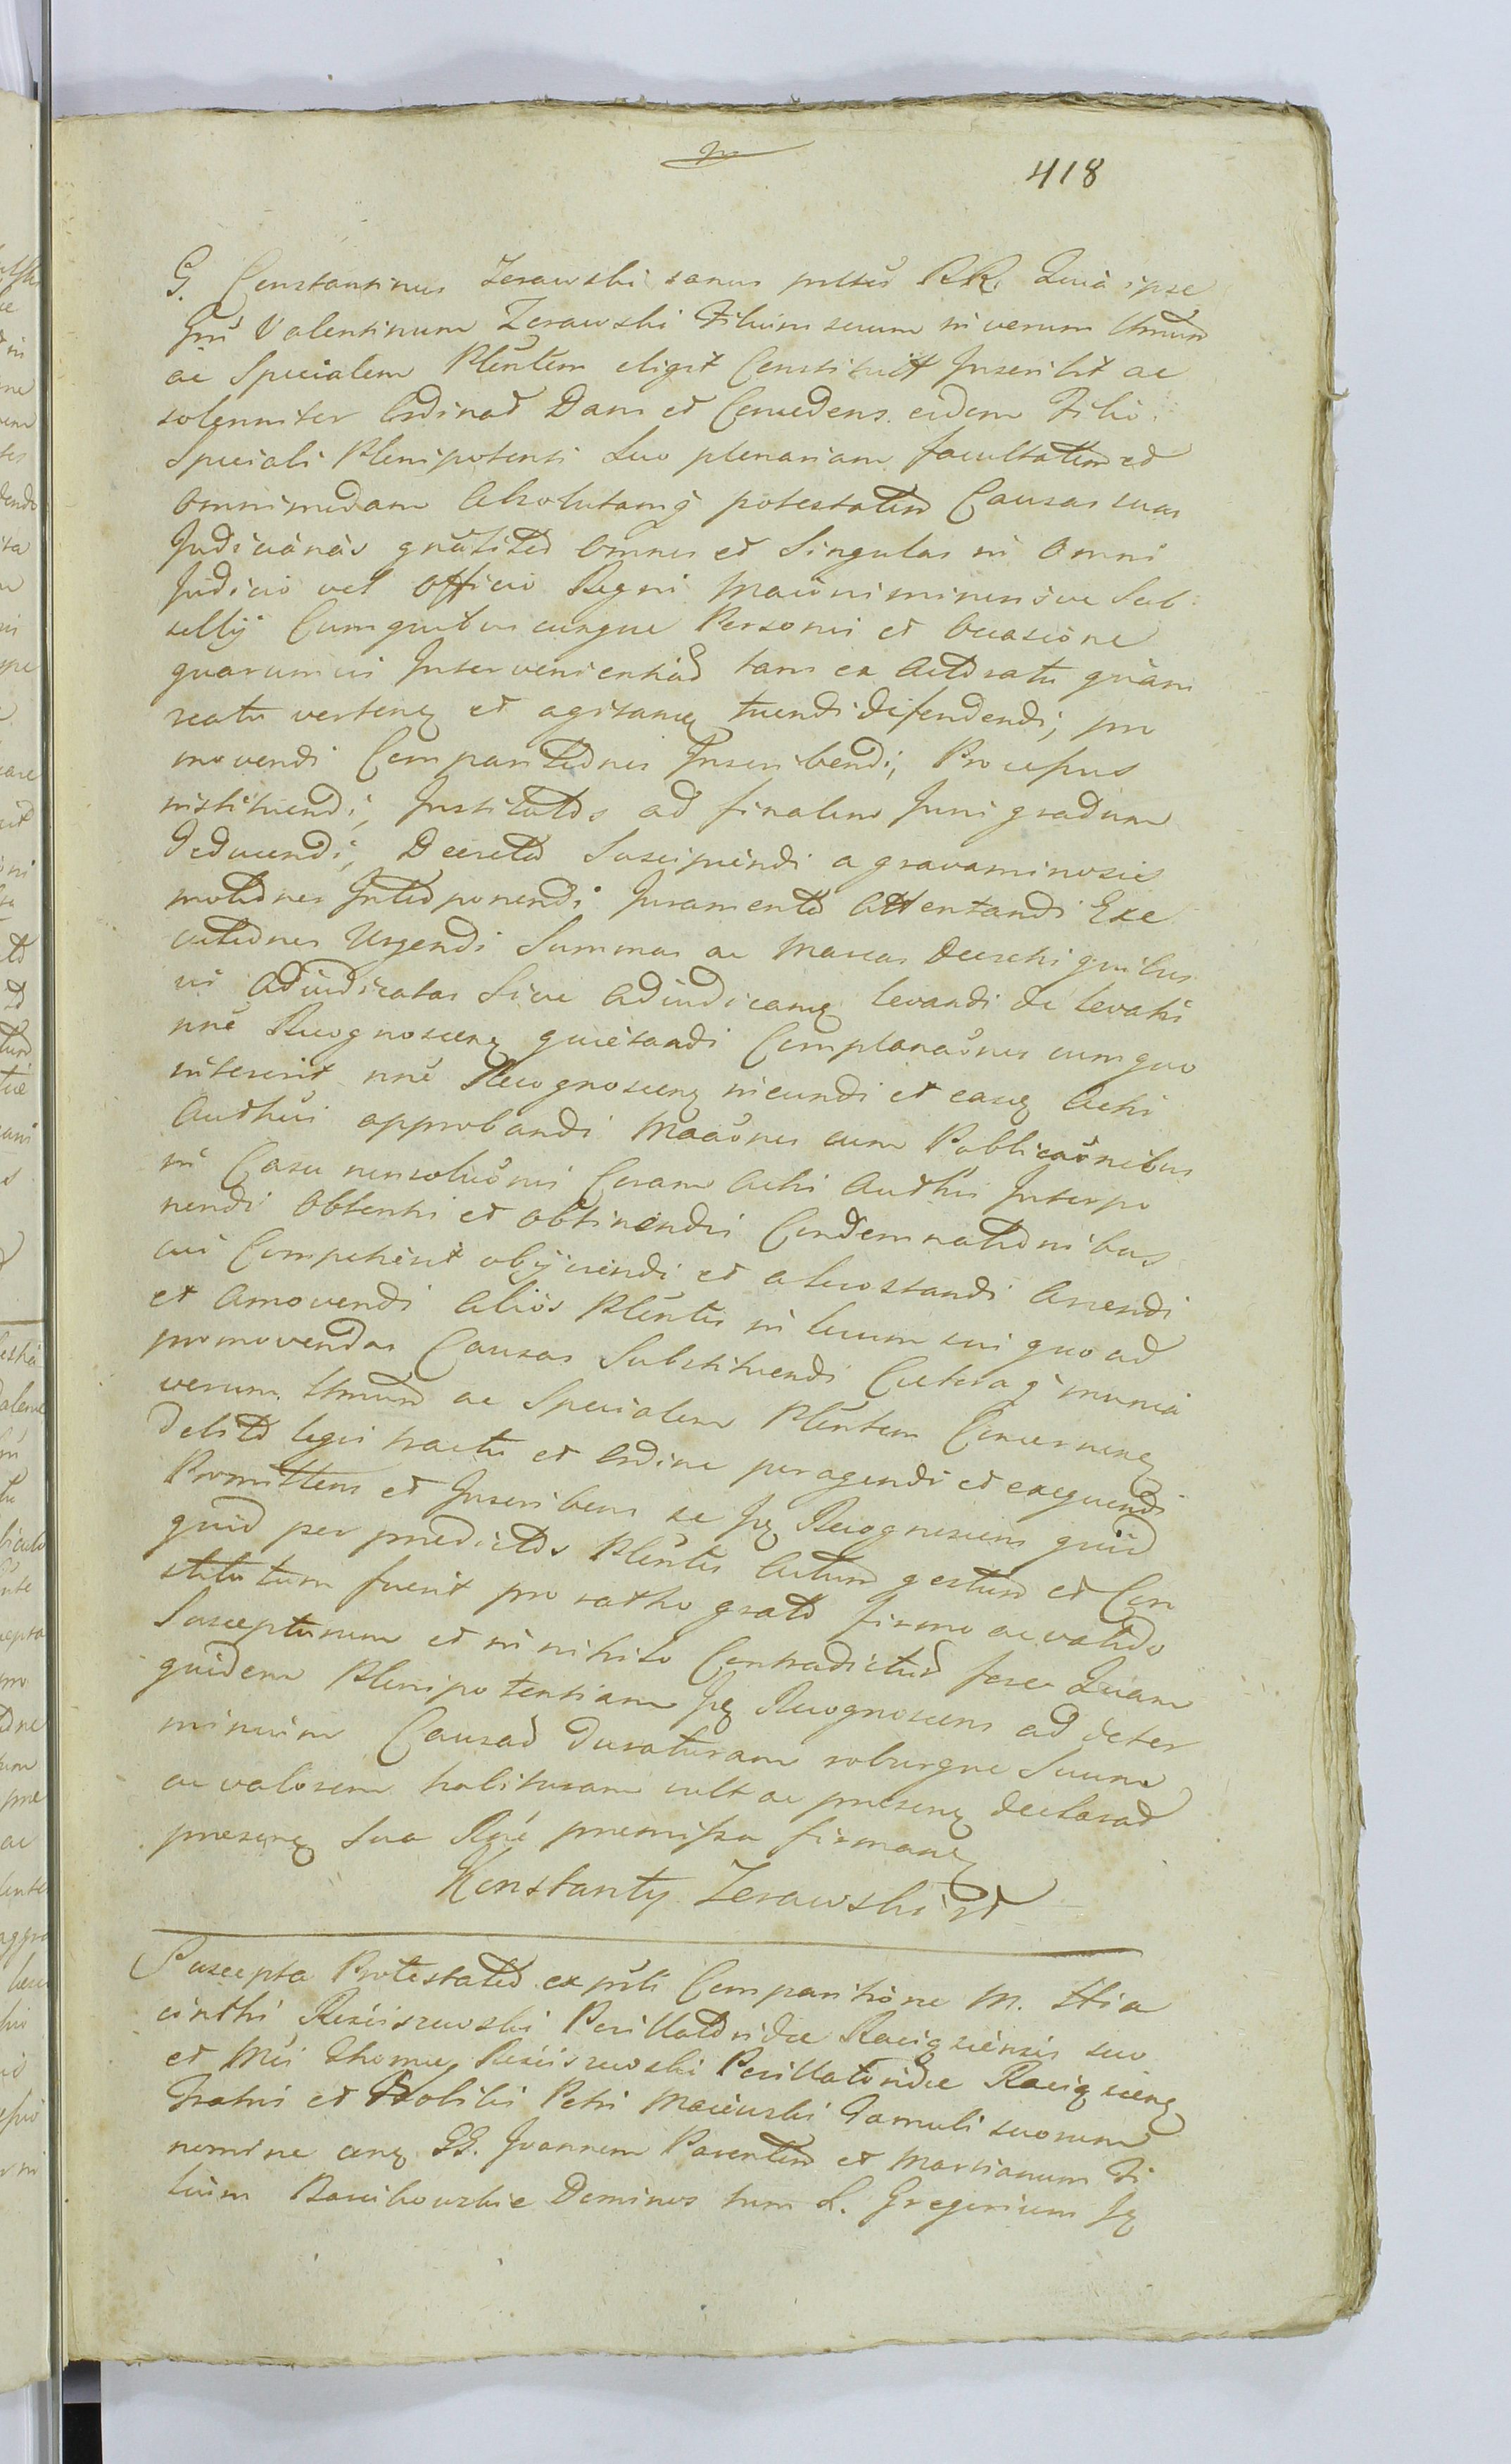 418
G. Constantinus Zerawski sanus RR. Quia ipse
Gnu Valentinum Zerawski Filium suum in verum Utmum
ac Specialem Plentem eligit Constituit Inscribit ac
solenniter Ordinat Dans et Concedens eidem Filio
Speciali Plenipotenti Suo plenariam facultatem et
Omnimodam Absolutamq potestatem Causas suas
Judiciarias gnaliter Omnes et Singulas in Omni
Judicio vel Officio Regni Maioris minorisve Sub
sellij Cum quibuscunque Personis et Occasione
quarumvis Intervenientiar tam ex Actoratu quam
reatu verten et agitan tuendi defendendi, pro
movendi Comparitiones Inscribendi, Processus
instituendi, Institutos ad finalem Juris gradum
Deducendi, Decreta Suscipiendi a gravaminosis
motiones Interponendi Juramenta Attentandi Exe
cutiones Urgendi Summas ac Marcas Decretis quibus
vis Adiudicatas Sive Adiudican levandi de levatis
nne Recognoscen quietandi Complanaones cum quo
intererit nne Recognoscen ineundi et easq Actis
Authcis approbandi Maaones cum Publicaonibus
in Casu nonsoluonis Coram Actis Authcis Interpo
nendi Obtentis et obtinendis Condemnationibus
cui Competierit obijciendi et alias standi Arrendi
et Amovendi Alios Plentes in locum sui quo ad
promovendas Causas Substituendi Caeteraq munia
verum Utmum ac Specialem Plentem Concernen
Debito legis tractu et Ordine peragendi et exequendi
Promittens et Inscribens se Recognoscens quid
quid per praedictos Plentes Actum gestum et Con
stitutum fuerit pro ratho grato firmo ac valido
Suscepturum et in nihilo Contradicturum fore Quam
quidem Plenipotentiam Recognoscens ad deter
minium Causar Duraturam roburque Suum
ac valorem habituram vult ac presen declarat
presen Sua Rne premissa firman
Konstanty Zerawski
Suscepta Protestatio ex pnti Comparitione M. Hia
cinthi Rościszewski Pocillatoridae Raciązensis suo
et Mci Thomae Rościszewski Pocillatoridae Raciązien
Fratris et Nobilis Petri Maiewski Famuli suorum
nomine con GG. Joannem Parentem et Martianum Fi
lium Dominos tum L. Gregorium